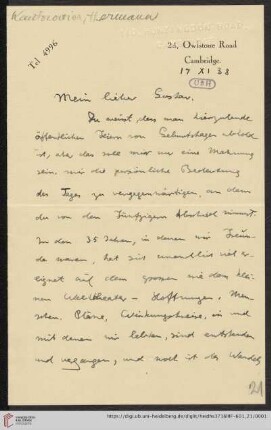 Kantorowicz, Hermann
Tel 4996
23, Owlstone Road
Cambridge.
17 XI 38
UBH
Mein lieber Gustav,
Du weisst, dass man hierzulande
öffentlichen Feiern von Geburtstagen abhold
ist, also das soll mir nur eine Mahnung
sein, mir die persönliche Bedeutung
des Tages zu vergegenwärtigen, an dem
du von den Fünfzigern Abschied nimmst.
In den 35 Jahren, in denen wir Freun-
de waren, hat sich unendlich viel er-
eignet auf dem grossen wie dem klei-
nen Welttheater – Hoffnungen, Men-
schen, Pläne, Wirkungskreise, in und
mit denen wir lebten, sind entstanden
und vergangen, und noch ist der Wandel
21
https://digi.ub.uni-heidelberg.de/diglit/heidhs3716IIIF-601_21/0001